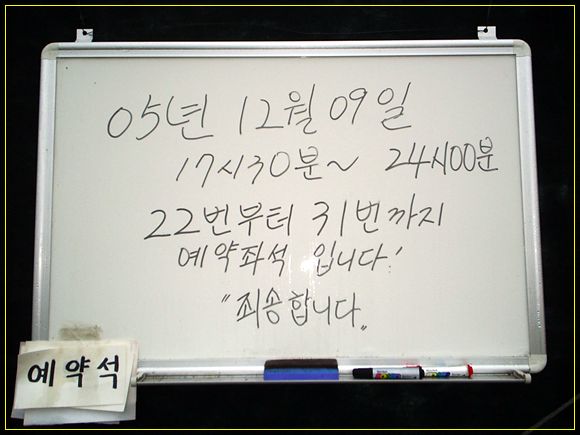 05년 12월 09일
17시30분~ 24시00분
22번부터 31번까지
예약좌석 입니다!
"죄송합니다"
예약석